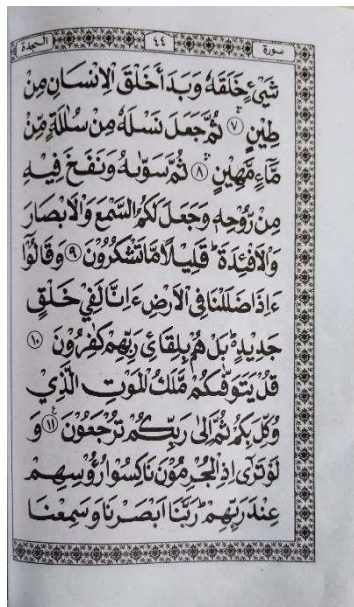 سورة ٤٤ السجدة
شَیْءٍ خَلَقَهٗ وَبَدَاَ خَلْقَ الْاِنْسَانِ مِنْ
طِيْنٍ ۝٧ ثُمَّ جَعَلَ نَسْلَهٗ مِنْ سُلٰلَةٍ مِّنْ
مَّآءٍ مَّهِيْنٍ ۝٨ ثُمَّ سَوّٰىهُ وَنَفَخَ فِيْهِ
مِنْ رُّوْحِهٖ وَجَعَلَ لَكُمُ السَّمْعَ وَالْاَبْصَارَ
وَالْاَفْئِدَةَ ؕ قَلِيْلًا مَّا تَشْكُرُوْنَ ۝٩ وَقَالُوْۤا
ءَاِذَا ضَلَلْنَا فِی الْاَرْضِ ءَاِنَّا لَفِیْ خَلْقٍ
جَدِيْدٍ ؕ بَلْ هُمْ بِلِقَآئِ رَبِّهِمْ كٰفِرُوْنَ ۝١٠
قُلْ يَتَوَفّٰىكُمْ مَّلَكُ الْمَوْتِ الَّذِیْ
وُكِّلَ بِكُمْ ثُمَّ اِلٰی رَبِّكُمْ تُرْجَعُوْنَ ۝١١ وَ
لَوْ تَرٰۤی اِذِ الْمُجْرِمُوْنَ نَاكِسُوْا رُءُوْسِهِمْ
عِنْدَ رَبِّهِمْ ؕ رَبَّنَاۤ اَبْصَرْنَا وَسَمِعْنَا